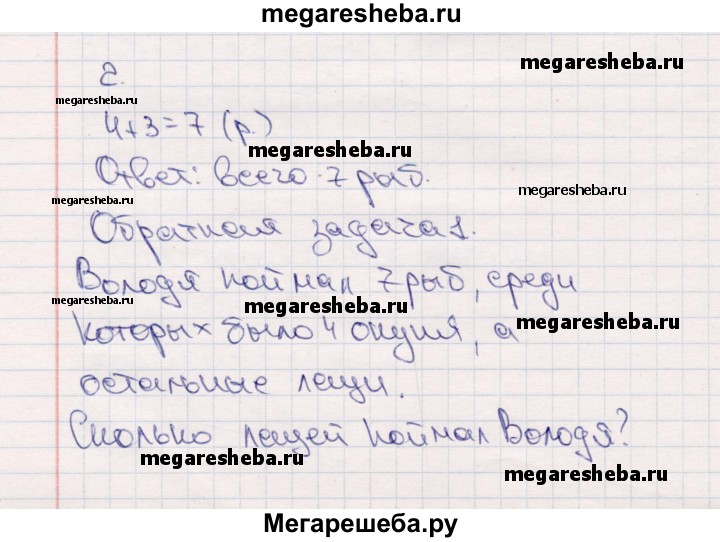 megaresheba.ru
megaresheba.ru
2.
megaresheba.ru
4+3=7 (р.)
megaresheba.ru
Ответ: всего 7 рыб.
megaresheba.ru
megaresheba.ru
Обратная задача 1.
Володя поймал 7 рыб, среди
megaresheba.ru
megaresheba.ru
которых было 4 окуня, а
megaresheba.ru
остальные лещи.
Сколько лещей поймал Володя?
megaresheba.ru
megaresheba.ru
Мегарешеба.ру